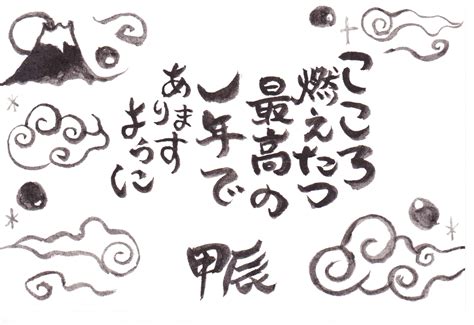 こころ
燃えたつ
最高の
一年で
あります
ように
甲辰